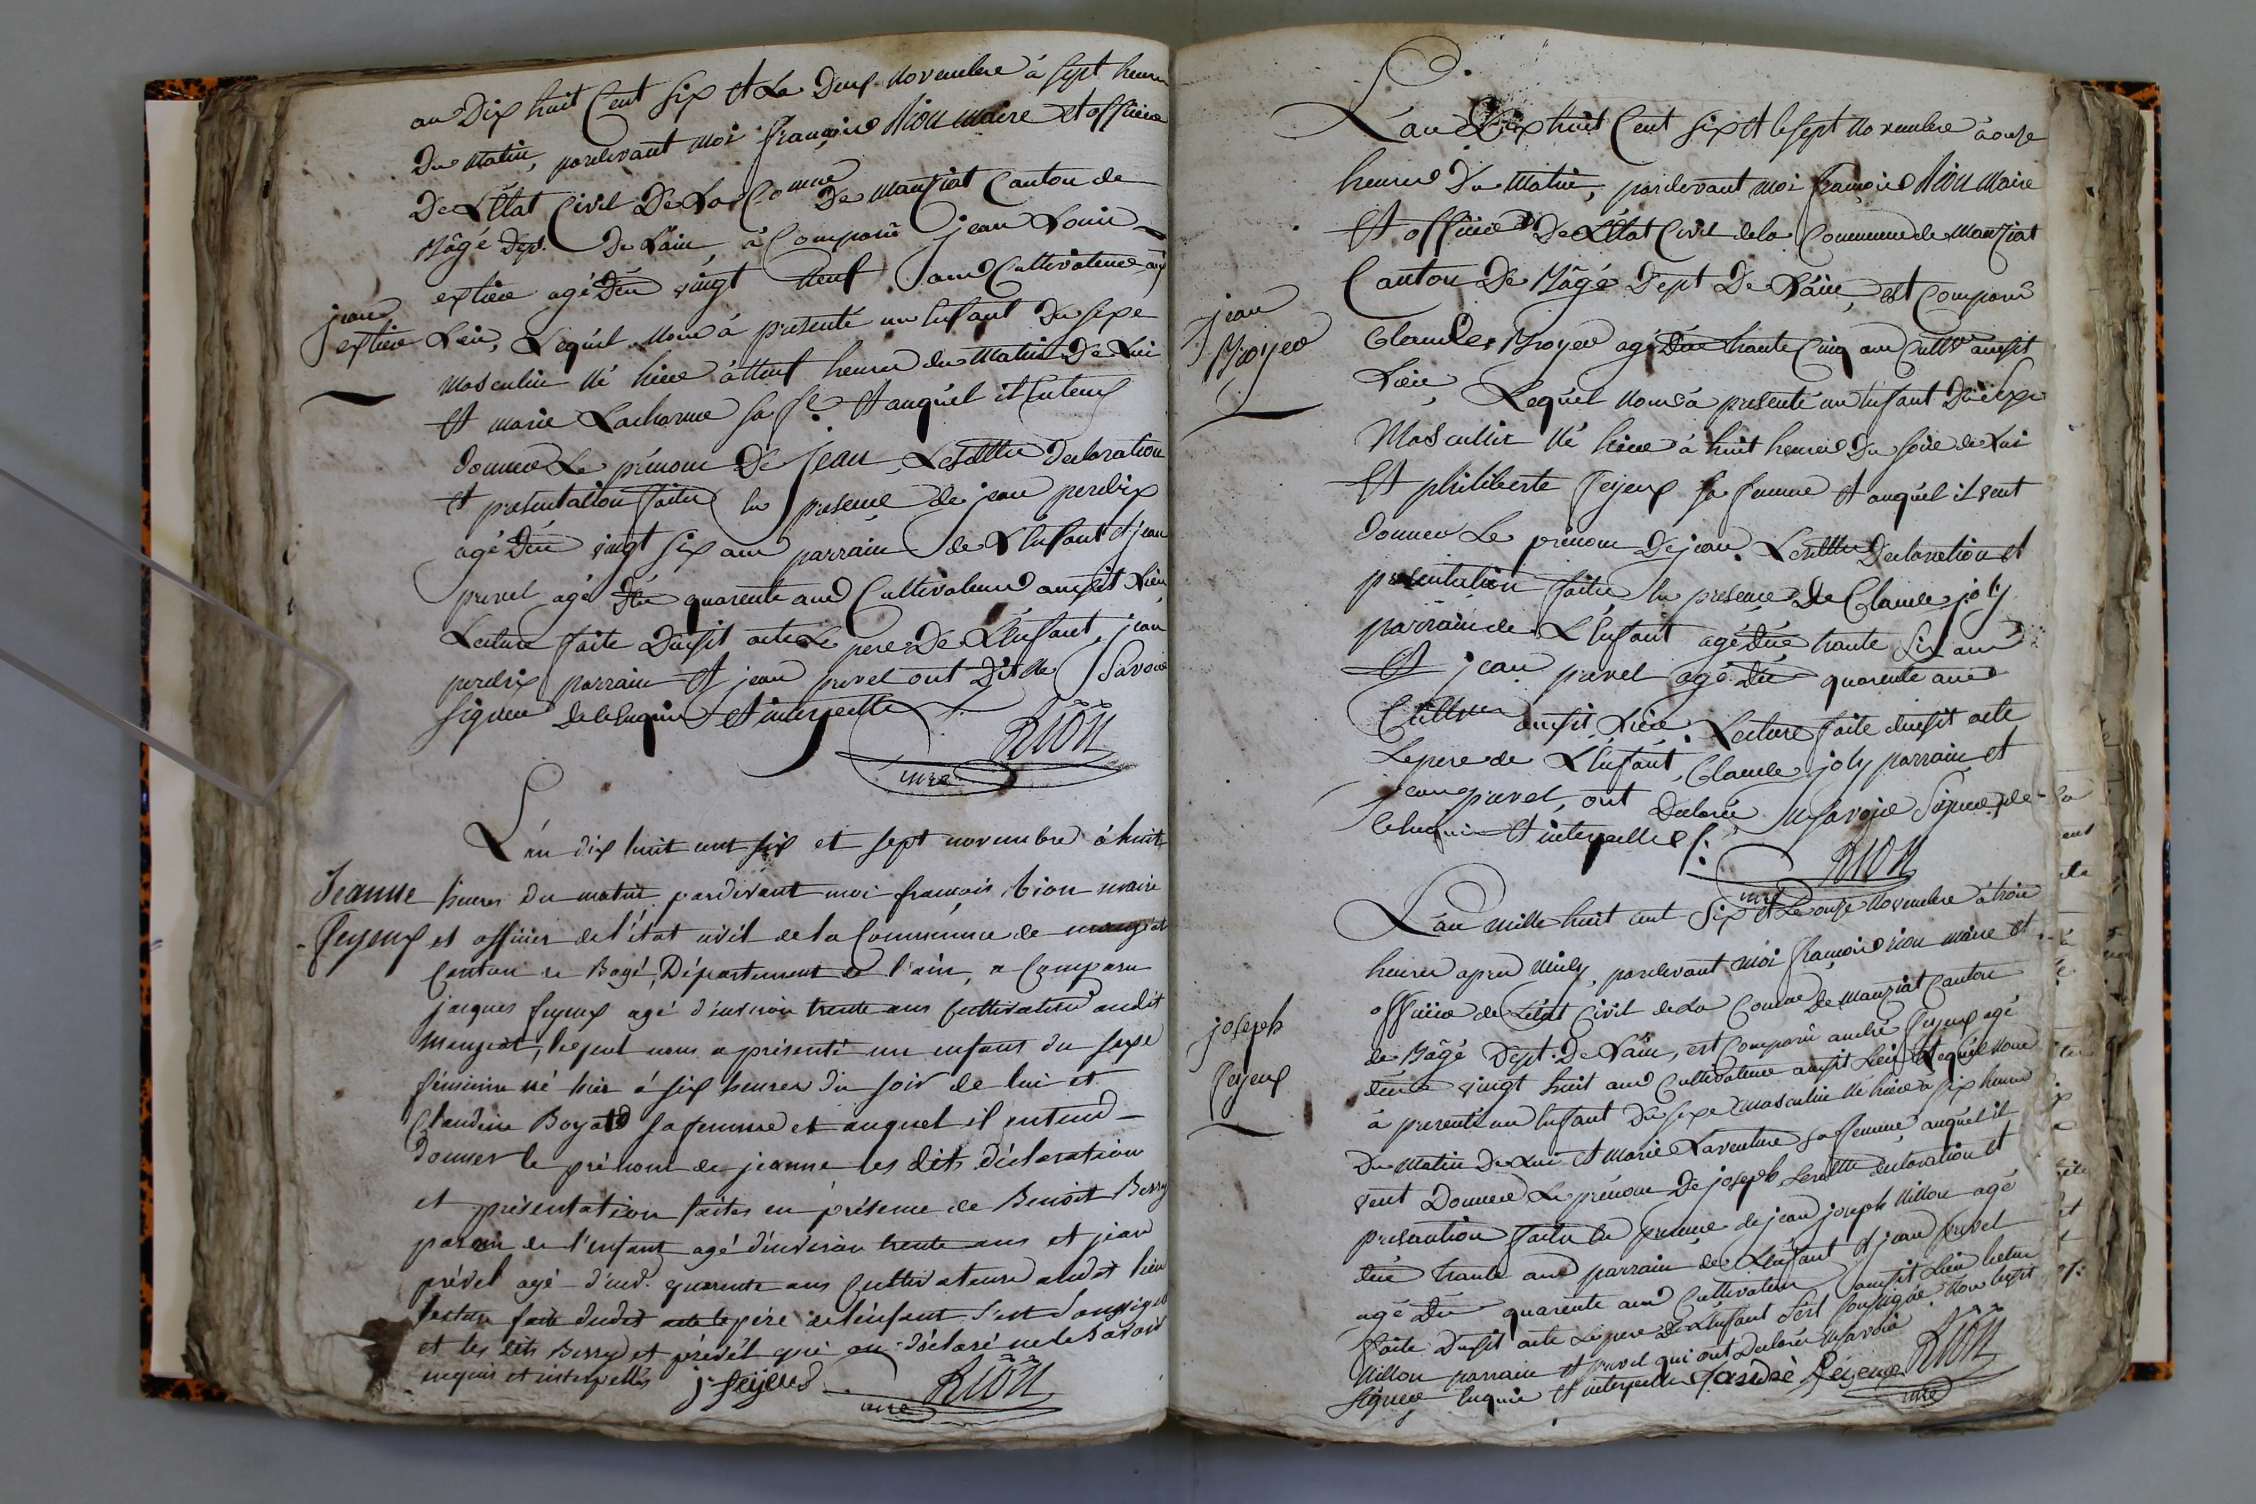 an Dix huit Cent Six et Le Deux novembre à sept heures
Du matin, pardevant moi françois Rion maire et officier
De L'Etat Civil De La Comne De Manziat Canton de
Bâgé Dept. De L'ain, à Comparu jean Louis
agé D'en vingt neuf ans Cultivateur audit
jean
Lieu, Lequel nous à presenté un Enfant Du sexe
masculin né hier à neuf heures du Matin De Lui
et marie Lacharme sa fe. et auquel il Entend
donner Le prénom De jean, Lesdittes declaration
et presentation faites en presence de jean perdrix
agé D'en vingt six ans parrain de L'Enfant et jean
prevel agé D'en quarente ans Cultivateurs audit Lieu
Lecture faite Dudit acte Le pere De L'Enfant, jean
perdrix parrain et jean prevel ont Dit ne Savoir
signer De ce Enquis et interpellés
RION
mre
L'an dix huit cent six et sept novembre à huit
Jeanne
heures du matin pardevant moi françois Rion maire
feyeux
et officier de l'état civil de la Commune de manziat
Canton de Bagé, Département de l'ain, a Comparu
jacques feyeux agé d'environ trente ans Cultivateur audit
Manziat, lequel nous a présenté un enfant du sexe
féminin né hier à six heures du soir de lui et
Claudine Boyat sa femme et auquel il entend
donner le prénom de jeanne les dits déclaration
et présentation faites en présence de Benoit Berry
parain de l'enfant agé d'environ trente ans et jean
prével agé d'env. quarente ans Cultivateurs audit lieu
lecture faite dudit acte le père de l'enfant s'est soussigné
et les dits Berry et prével qui on déclaré ne le savoir
enquis et interpellés
j. feyeux
RION
mre
L'an Dix huit Cent six et le sept novembre à onze
heures Du Matin, pardevant moi françois Rion Maire
Et officier De L'Etat Civil de la Commune de Manziat
Canton De Bâgé Dept De L'ain, est Comparu
jean
Broyer
Claude Broyer agé D'en trante Cinq ans Cultr audit
Lieu, Lequel nous à presenté un Enfant Du sexe
Masculin né hier à huit heures Du soir de Lui
Et philiberte feyeux sa femme et auquel il veut
donner Le prénom De jean. Lesdittes Declaration et
presentation faites En presence De Claude joly
parrain de L'Enfant agé D'en trante six ans
et jean prevel agé D'en quarente ans
Cultrs audit Lieu. Lecture faite dudit acte
Le pere de L'Enfant, Claude joly parrain et
jean prevel, ont Declarés ne savoir Signer de
ce Enquis et interpellés
RION
mre
L'an mille huit cent Six et Le onze Novembre à trois
heures apres midy, pardevant moi françois rion maire et
officier de L'état Civil de La Comne De Manziat Canton
de Bâgé Dept. De L'ain, est Comparu andré feyeux agé
joseph
feyeux
d'en vingt huit ans Cultivateur audit Lieu Lequel nous
à presenté un Enfant Du sexe masculin né hier à six heures
Du Matin De Lui et Marie Laventure sa femme, auquel il
veut Donner Le prénom De joseph, Lesdittes declaration et
presantion faites En presence de jean joseph Nillon agé
d'en trante ans parrain de L'Enfant et jean prevel
agé D'en quarente ans Cultivateur audit Lieu lecture
faite Dudit acte Le pere De L'Enfant s'est soussigné non ledit
Nillon parrain et prevel qui ont Declarés ne savoir
signer Enquis et interpellés
andrè feyeux
RION
mre